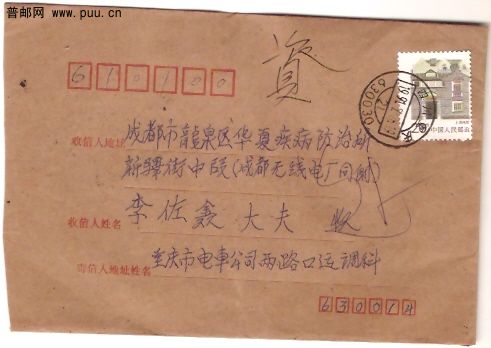 普邮网
www.puu.cn
资
610100
20
中国人民邮政
630030
收信人地址
成都市龍泉区华夏疾病防治所
新驛街中段(成都无线电厂同侧)
收信人姓名
李佐鑫大夫 收
寄信人地址姓名
重庆市电車公司两路口运调科
630014